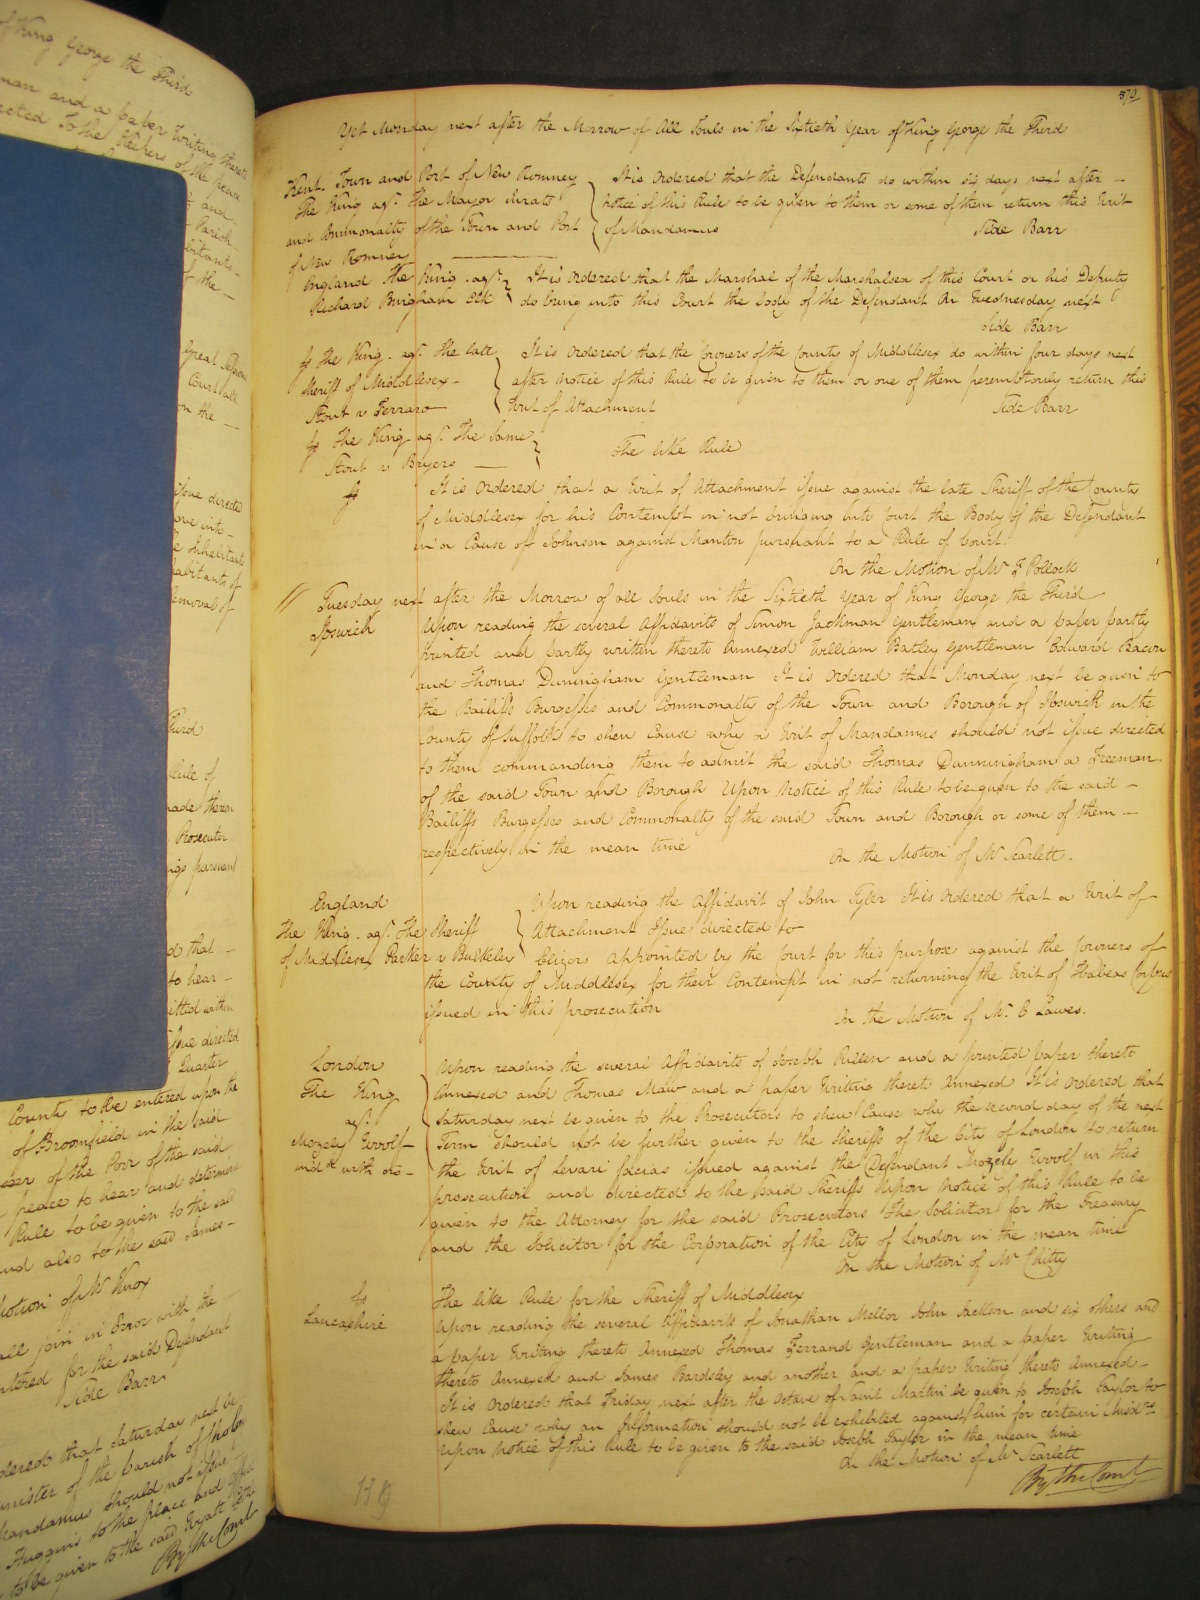 of King George the Third
man and a paper Writing thereto
directed To the Keepers of the peace
and
Parish
bitants
of the
Great Sessions
Court hall
on the
issue directed
ove into
Inhabitants
habitants of
Removal of
Third
Rule of
made thereon
Prosecutor
ings pursuant
d that
to hear
itted within
issue directed
Quarter
County to be entered upon the
of Broomfield in the said
seer of the Poor of the said
peace to hear and determine
Rule to be given to the said
and also to the said James
Motion of Mr Knox
all join in Error with the
entered for the said Defendant
Side Barr
dered that Saturday next be
minister of the parish of
Mandamus should not issue
Huggins to the place and Office
to be given to the said Wyatt
By the Court
579
Yet Monday next after the Morrow of All Souls in the Sixtieth Year of King George the Third
Kent. Town and Port of New Romney
The King agt. the Mayor Jurats
and Commonalty of the Town and Port
of New Romney
It is Ordered that the Defendants do within six days next after
notice of this Rule to be given to them or some of them return this Writ
of Mandamus Side Barr
England The King agt.
Richard Bingham Clk
It is Ordered that the Marshal of the Marshalsea of this Court or his Deputy
do bring into this Court the body of the Defendant on Wednesday next
Side Barr
The King agt. The late
Sheriff of Middlesex
Stout v Ferraro
It is Ordered that the Coroners of the County of Middlesex do within four days next
after notice of this Rule to be given to them or one of them peremptorily return this
Writ of Attachment Side Barr
The King agt. The Same
Stout v Bryers
The like Rule
It is Ordered that a Writ of Attachment issue against the late Sheriff of the County
of Middlesex for his Contempt in not bringing into Court the Body of the Defendant
in a Cause of Johnson against Manton pursuant to a Rule of Court.
On the Motion of Mr F Pollock
Tuesday next after the Morrow of all Souls in the Sixtieth Year of King George the Third
Ipswich
Upon reading the several Affidavits of Simon Jackman Gentleman and a paper partly
printed and partly written thereto Annexed William Batley Gentleman Edward Bacon
and Thomas Dunningham Gentleman It is Ordered that Monday next be given to
the Bailiffs Burgesses and Commonalty of the Town and Borough of Ipswich in the
County of Suffolk to shew Cause why a Writ of Mandamus should not issue directed
to them commanding them to admit the said Thomas Dunningham a Freeman
of the said Town and Borough Upon Notice of this Rule to be given to the said
Bailiffs Burgesses and Commonalty of the said Town and Borough or some of them
respectively in the mean time
On the Motion of Mr Scarlett.
England
The King agt. The Sheriff
of Middlesex Parker v Bulkeley
Upon reading the Affidavit of John Tyler It is Ordered that a Writ of
Attachment Issue directed to
Elizor appointed by the Court for this purpose against the Coroners of
the County of Middlesex for their Contempt in not returning the Writ of Habeas Corpus
issued in this prosecution
On the Motion of Mr. E Lawes.
London
The King
agt.
Mozely Woolf
indt. with ors
Upon reading the several Affidavits of Joseph Pullen and a printed paper thereto
Annexed and Thomas Maw and a paper Writing thereto Annexed It is Ordered that
Saturday next be given to the Prosecutors to shew Cause why the second day of the next
Term should not be further given to the Sheriffs of the City of London to return
the Writ of Levari facias issued against the Defendant Mozely Woolf in this
prosecution and directed to the said Sheriffs Upon Notice of this Rule to be
given to the Attorney for the said Prosecutors The Solicitor for the Treasury
and the Solicitor for the Corporation of the City of London in the mean time
On the Motion of Mr Chitty
The like Rule for the Sheriff of Middlesex
Lancashire
Upon reading the several Affidavits of Jonathan Mellor John Jackson and six others and
a paper Writing thereto Annexed Thomas Ferrand Gentleman and a paper Writing
thereto Annexed and James Bardsley and another and a paper Writing thereto Annexed
It is Ordered that Friday next after the Octave of Saint Martin be given to Joseph Taylor to
shew Cause why an Information should not be exhibited against him for certain Misdrs
Upon Notice of this Rule to be given to the said Joseph Taylor in the mean time
On the Motion of Mr Scarlett
By the Court